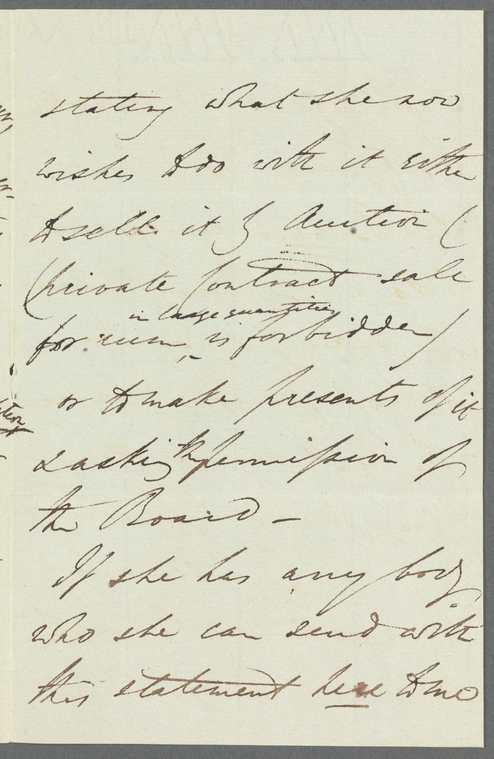 stating what she now
wishes to do with it either
to sell it by Auction (
(private Contract sale
in large quantities
for rum is forbidden)
or to make presents of it
& asking the permission of
the Board -
If she has any body
who she can send with
this statement here to me